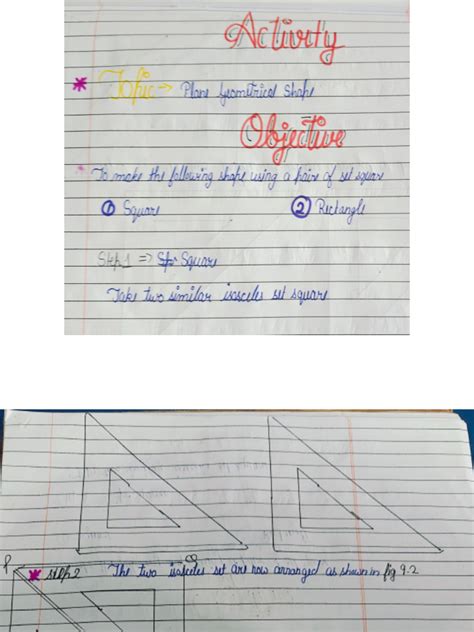 Activity
Topic → Plane Geometrical Shape
Objective
To make the following shape using a pair of set square
① Square ② Rectangle
Step 1 ⇒ Square
Take two similar isosceles set square
P Q
Step 2 The two isosceles set are now arranged as shown in fig 9.2